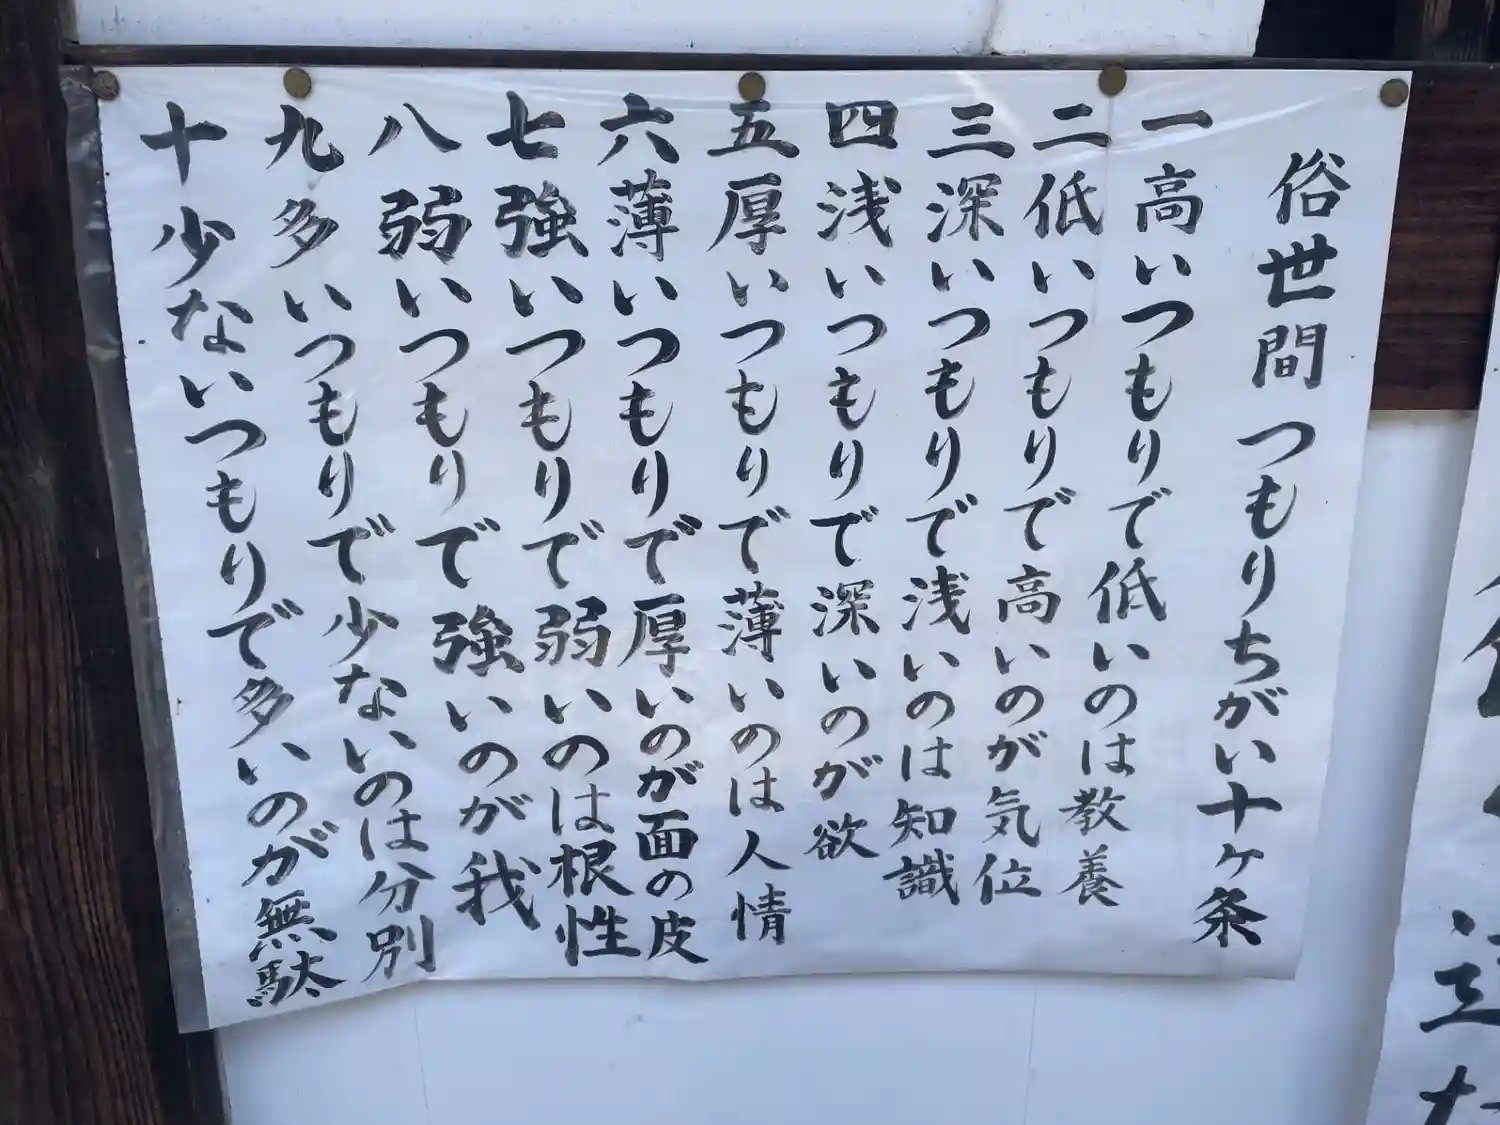 俗世間つもりちがい十ヶ条
一高いつもりで低いのは教養
二低いつもりで高いのが気位
三深いつもりで浅いのは知識
四浅いつもりで深いのが欲
五厚いつもりで薄いのは人情
六薄いつもりで厚いのが面の皮
七強いつもりで弱いのは根性
八弱いつもりで強いのが我
九多いつもりで少ないのは分別
十少ないつもりで多いのが無駄